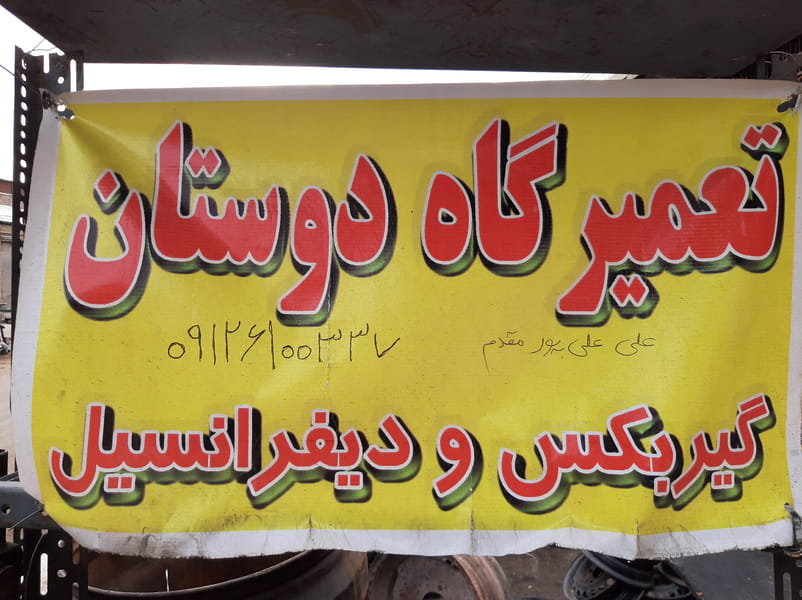 تعمیرگاه دوستان
علی علی پور مقدم ۰۹۱۲۶۱۰۰۳۳۷
گیربکس و دیفرانسیل